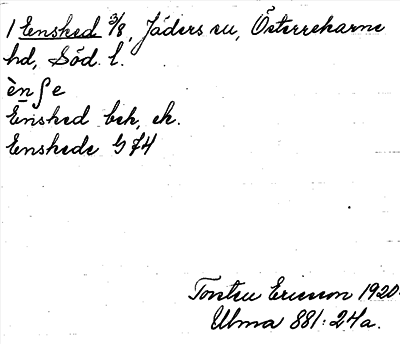 1 Ensked 3/8, Jäders sn, Österrekarne
hd, Söd. l.
ènʃe
Ensked bek, ek.
Enskede G 74
Torsten Ericsson 1920.
Ulma 881:24a.